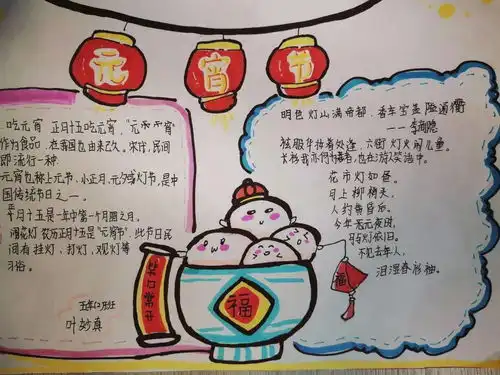 元宵节
吃元宵 正月十五吃元宵,"元宵
作为食品,在我国也由来已久。宋代,民间
即流行一种
元宵也称上元节,小正月、元夕或灯节,是中
国传统节日之一。
正月十五是一年中第一个月圆之月。
闹花灯 农历正月十五是"元宵节",此节日民
间有挂灯、打灯、观灯等
习俗。
叶妙真
笑口常开
福
明色灯山满帝都,香车宝盖隘通衢
——李商隐
袨服华妆着处逢,六街灯火闹儿童。
长衫我亦何为者,也在游人笑语中。
花市灯如昼。
月上柳梢头,
人约黄昏后。
今年元夜时,
月与灯依旧。
不见去年人,
泪湿春衫袖。
福